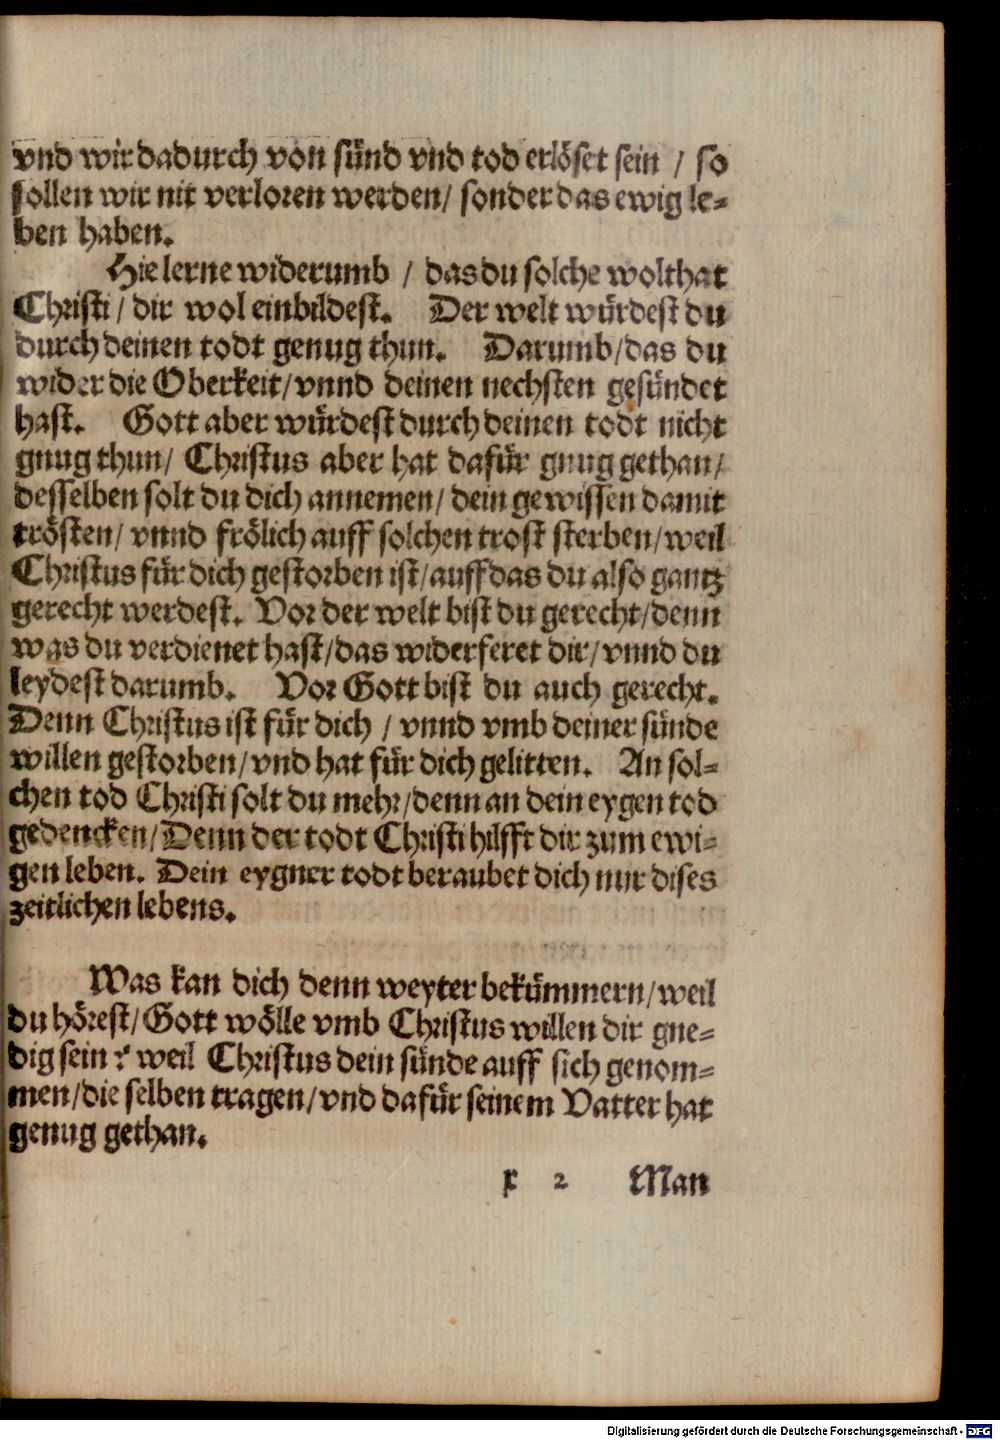 vnd wir dadurch von sünd vnd tod erlöset sein / so
sollen wir nit verloren werden/ sonder das ewig le-
ben haben.
Hie lerne widerumb / das du solche wolthat
Christi / dir wol einbildest. Der welt würdest du
durch deinen todt genug thun. Darumb/das du
wider die Oberkeit/vnnd deinen nechsten gesündet
hast. Gott aber würdest durch deinen todt nicht
gnug thun/ Christus aber hat dafür gnug gethan/
desselben solt du dich annemen/ dein gewissen damit
trösten/ vnnd frölich auff solchen trost sterben/weil
Christus für dich gestorben ist/auff das du also gantz
gerecht werdest. Vor der welt bist du gerecht/denn
was du verdienet hast/das widerferet dir/vnnd du
leydest darumb. Vor Gott bist du auch gerecht.
Denn Christus ist für dich / vnnd vmb deiner sünde
willen gestorben/vnd hat für dich gelitten. An sol-
chen tod Christi solt du mehr/denn an dein eygen tod
gedencken/Denn der todt Christi hilfft dir zum ewi-
gen leben. Dein eygner todt beraubet dich nur dises
zeitlichen lebens.
Was kan dich denn weyter bekümmern/weil
du hörest/Gott wölle vmb Christus willen dir gne-
dig sein? weil Christus dein sünde auff sich genom-
men/die selben tragen/vnd dafür seinem Vatter hat
genug gethan.
x 2 Man
Digitalisierung gefördert durch die Deutsche Forschungsgemeinschaft - DFG